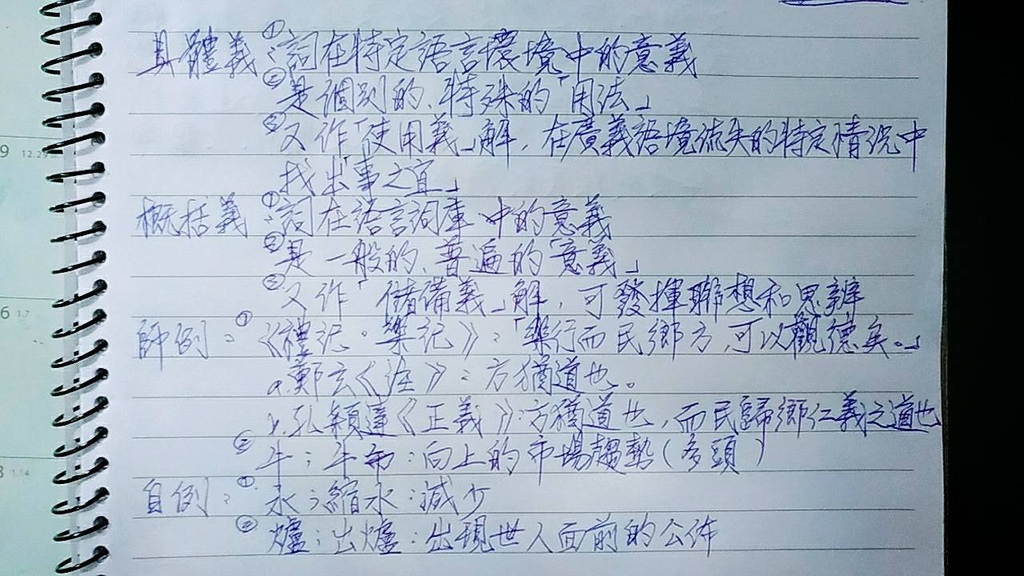 具體義:①詞在特定語言環境中的意義
②是個別的、特殊的「用法」
③又作「使用義」解,在廣義語境流失的特定情況中
找出「事之宜」
概括義:①詞在語言詞庫中的意義
②是一般的、普遍的「意義」
③又作「儲備義」解,可發揮聯想和思辨
師例:①《禮記·樂記》:「樂行而民鄉方,可以觀德矣。」
a.鄭玄《注》:方猶道也。
b.孔穎達《正義》:方猶道也,而民歸鄉仁義之道也
②牛;牛市:向上的市場趨勢(多頭)
自例:①水;縮水:減少
②爐;出爐:出現世人面前的公佈
9 12.29
6 1.7
8 1.14